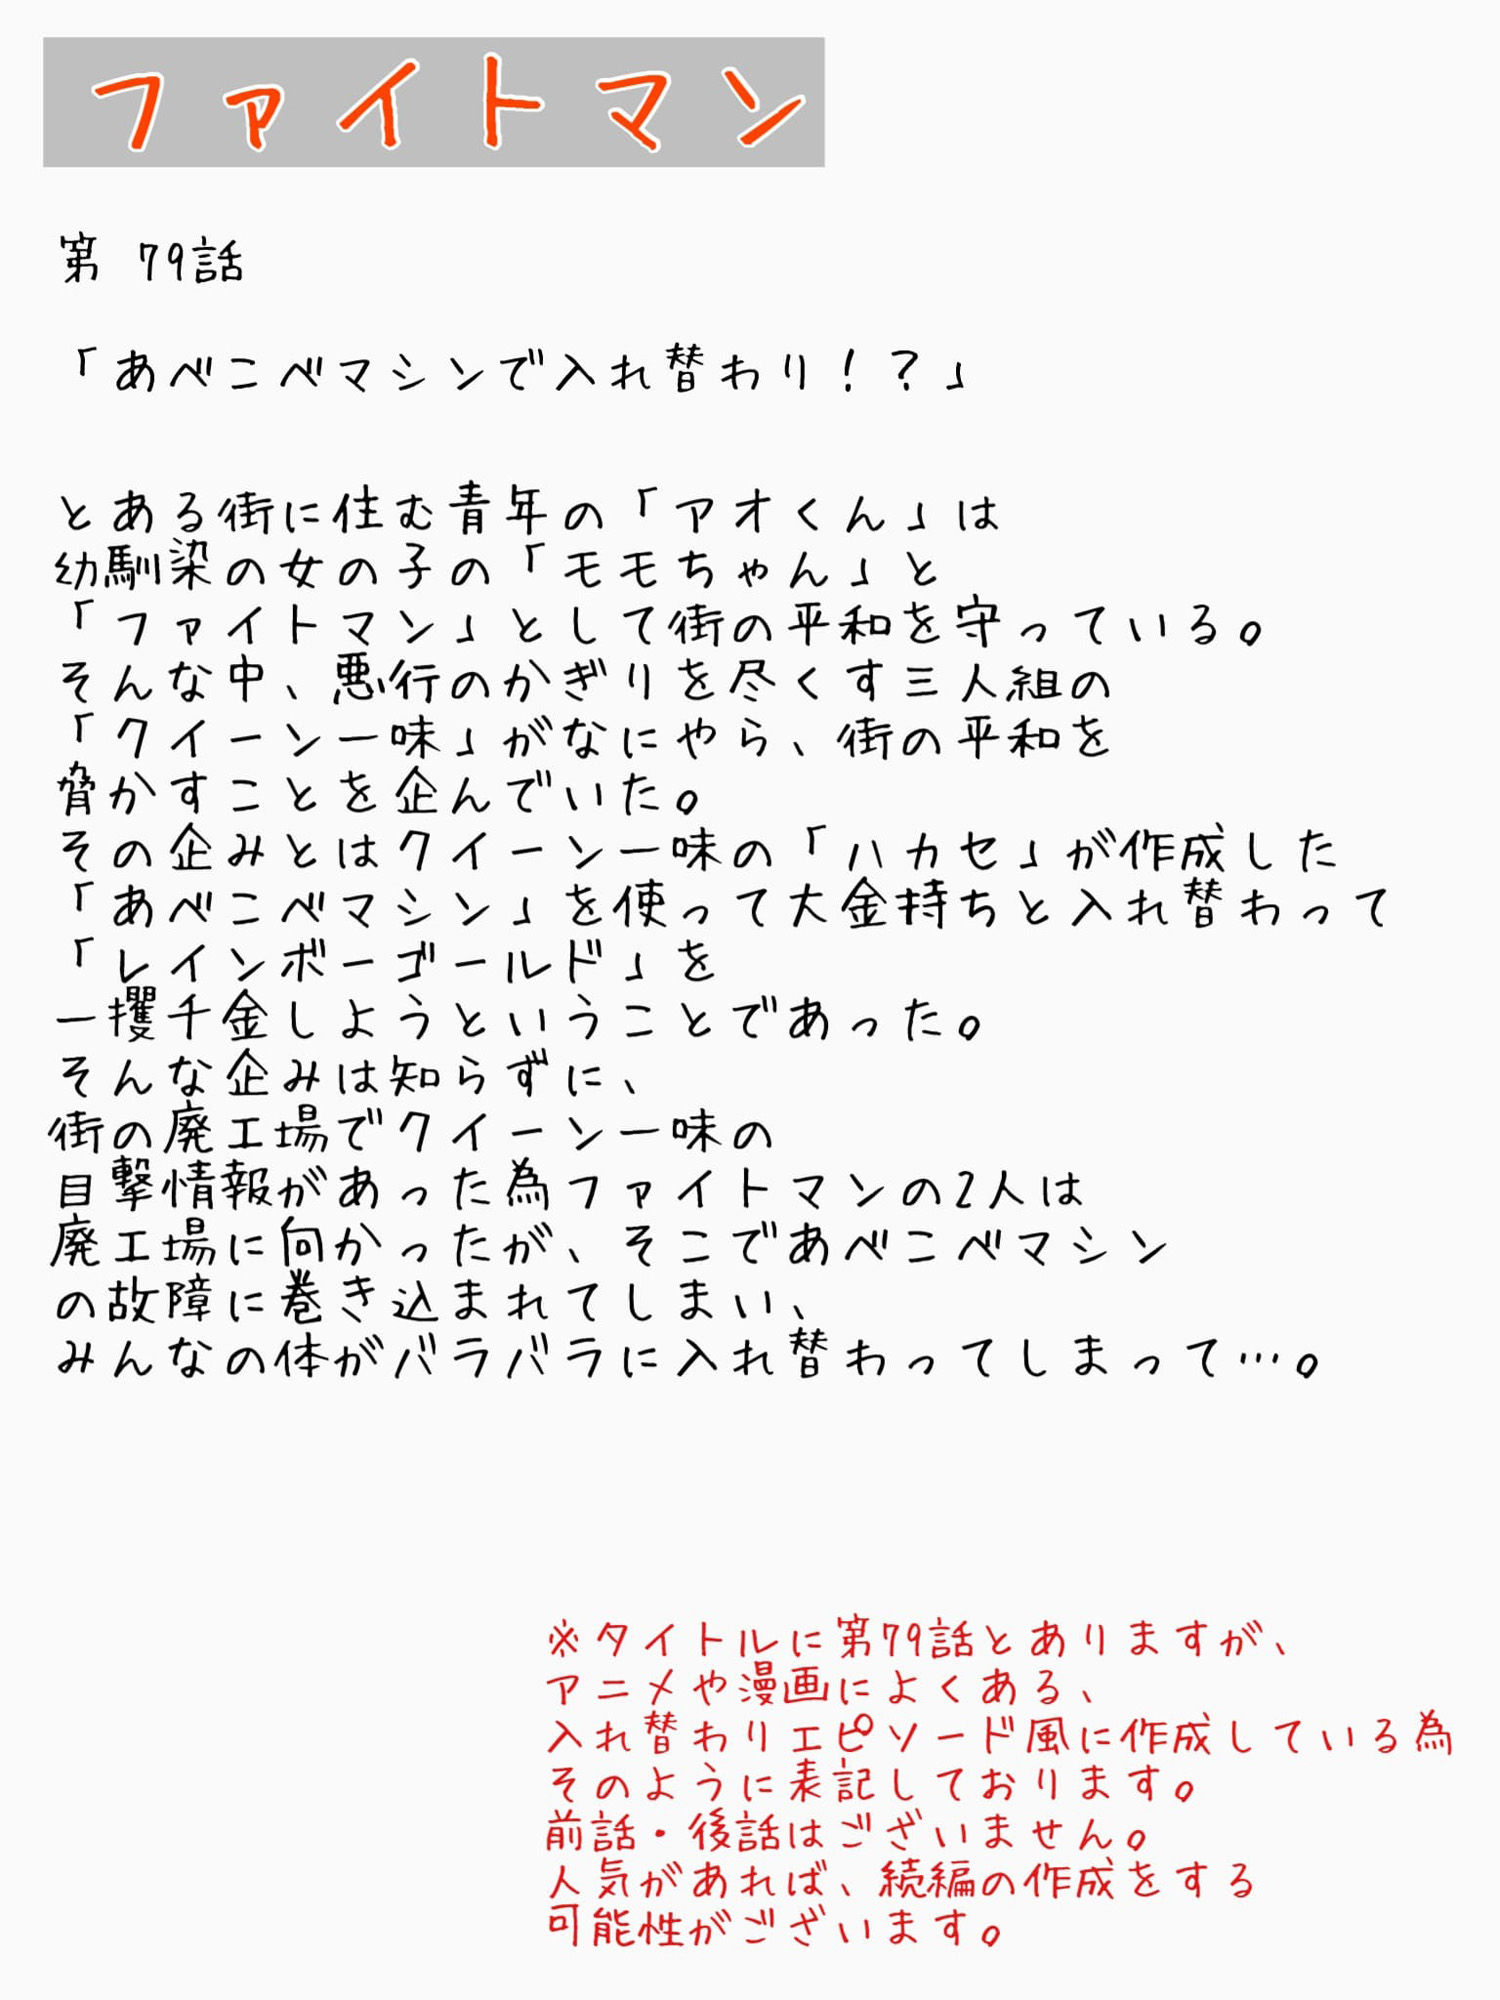 ファイトマン
第 79話
「あべこべマシンで入れ替わり！？」
とある街に住む青年の「アオくん」は
幼馴染の女の子の「モモちゃん」と
「ファイトマン」として街の平和を守っている。
そんな中、悪行のかぎりを尽くす三人組の
「クイーン一味」がなにやら、街の平和を
脅かすことを企んでいた。
その企みとはクイーン一味の「ハカセ」が作成した
「あべこべマシン」を使って大金持ちと入れ替わって
「レインボーゴールド」を
一攫千金しようということであった。
そんな企みは知らずに、
街の廃工場でクイーン一味の
目撃情報があった為ファイトマンの2人は
廃工場に向かったが、そこであべこべマシン
の故障に巻き込まれてしまい、
みんなの体がバラバラに入れ替わってしまって…。
※タイトルに第79話とありますが、
アニメや漫画によくある、
入れ替わりエピソード風に作成している為
そのように表記しております。
前話・後話はございません。
人気があれば、続編の作成をする
可能性がございます。